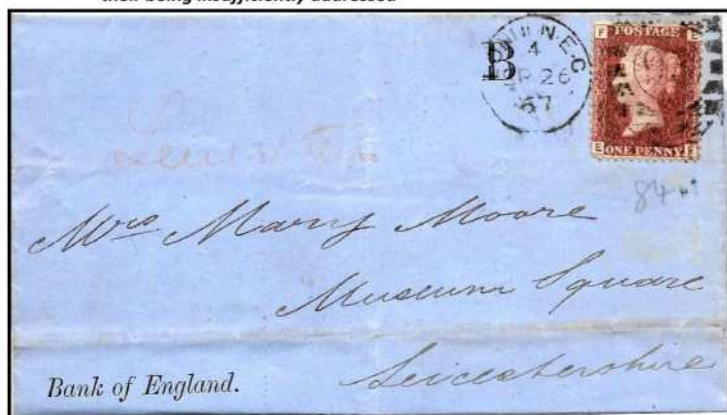 their being insufficiently addressed
B
N.E.C
4
AP 26
67
F E
POSTAGE
E ONE PENNY F
84
Mrs Mary Moore
Museum Square
Leicestershire
Bank of England.